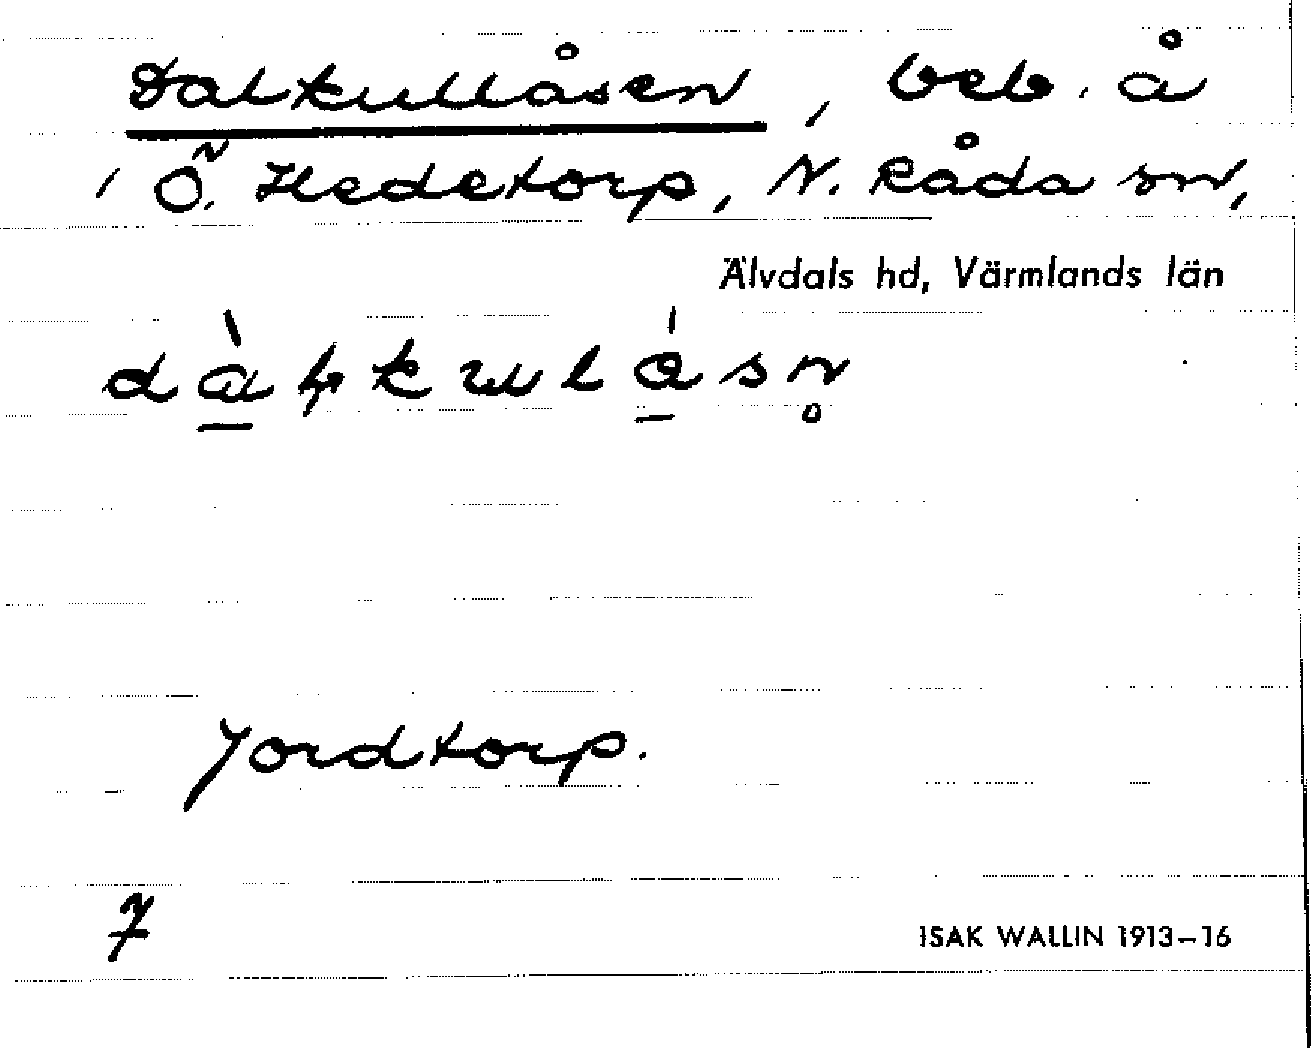 Dalkullåsen, beb. å
Ö. Hedetorp, N. Råda sn,
Älvdals hd, Värmlands län
Jordtorp.
7
ISAK WALLIN 1913–16